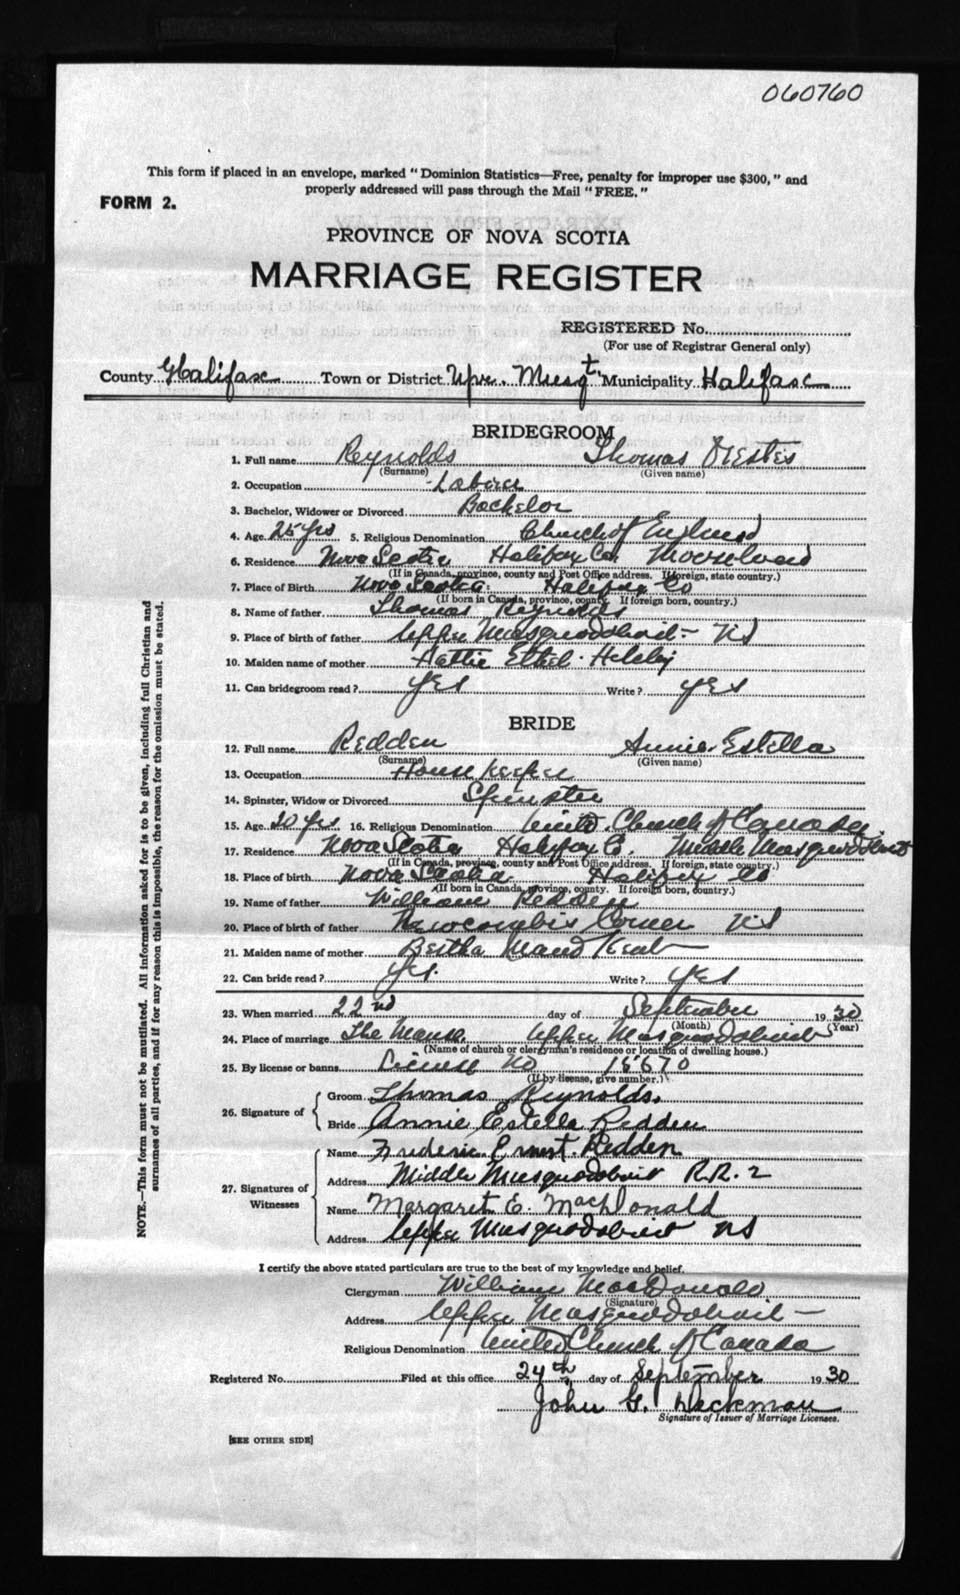 060760
This form if placed in an envelope, marked "Dominion Statistics—Free, penalty for improper use $300," and
properly addressed will pass through the Mail "FREE."
FORM 2.
PROVINCE OF NOVA SCOTIA
MARRIAGE REGISTER
REGISTERED No.
(For use of Registrar General only)
County Halifax Town or District Upr. Musqt. Municipality Halifax
BRIDEGROOM
1. Full name Reynolds Thomas
(Surname) (Given name)
2. Occupation Laborer
3. Bachelor, Widower or Divorced Bachelor
4. Age 25 yrs 5. Religious Denomination Church of England
6. Residence Nova Scotia Halifax Co. Mooseland
(If in Canada, province, county and Post Office address. If foreign, state country.)
7. Place of Birth Nova Scotia Halifax Co
(If born in Canada, province, county. If foreign born, country.)
8. Name of father Thomas Reynolds
9. Place of birth of father Upper Musquodoboit - NS
10. Maiden name of mother Hattie Ethel
11. Can bridegroom read? yes Write? yes
BRIDE
12. Full name Redden Annie Estella
(Surname) (Given name)
13. Occupation House keeper
14. Spinster, Widow or Divorced Spinster
15. Age 20 yrs 16. Religious Denomination United Church of Canada
17. Residence Nova Scotia Halifax Co. Middle Musquodoboit
(If in Canada, province, county and Post Office address. If foreign, state country.)
18. Place of birth Nova Scotia Halifax Co
(If born in Canada, province, county. If foreign born, country.)
19. Name of father William Redden
20. Place of birth of father Newcombe's Corner NS
21. Maiden name of mother Bertha Maud
22. Can bride read? yes. Write? yes
23. When married 22nd day of September 1930
(Month) (Year)
24. Place of marriage The Manse Upper Musquodoboit
(Name of church or clergyman's residence or location of dwelling house.)
25. By license or banns License No 15670
(If by license, give number.)
26. Signature of
Groom Thomas Reynolds.
Bride Annie Estella Redden
27. Signatures of Witnesses
Name Frederic Ernest Redden
Address Middle Musquodoboit R.R. 2
Name Margaret E. MacDonald
Address Upper Musquodoboit NS
I certify the above stated particulars are true to the best of my knowledge and belief.
Clergyman William MacDonald
(Signature)
Address Upper Musquodoboit -
Religious Denomination United Church of Canada
Registered No. Filed at this office 24th day of September 1930
John G. Deckman
Signature of Issuer of Marriage Licenses.
[SEE OTHER SIDE]
NOTE.—This form must not be mutilated. All information asked for is to be given, including full Christian and
surnames of all parties, and if for any reason this is impossible, the reason for the omission must be stated.